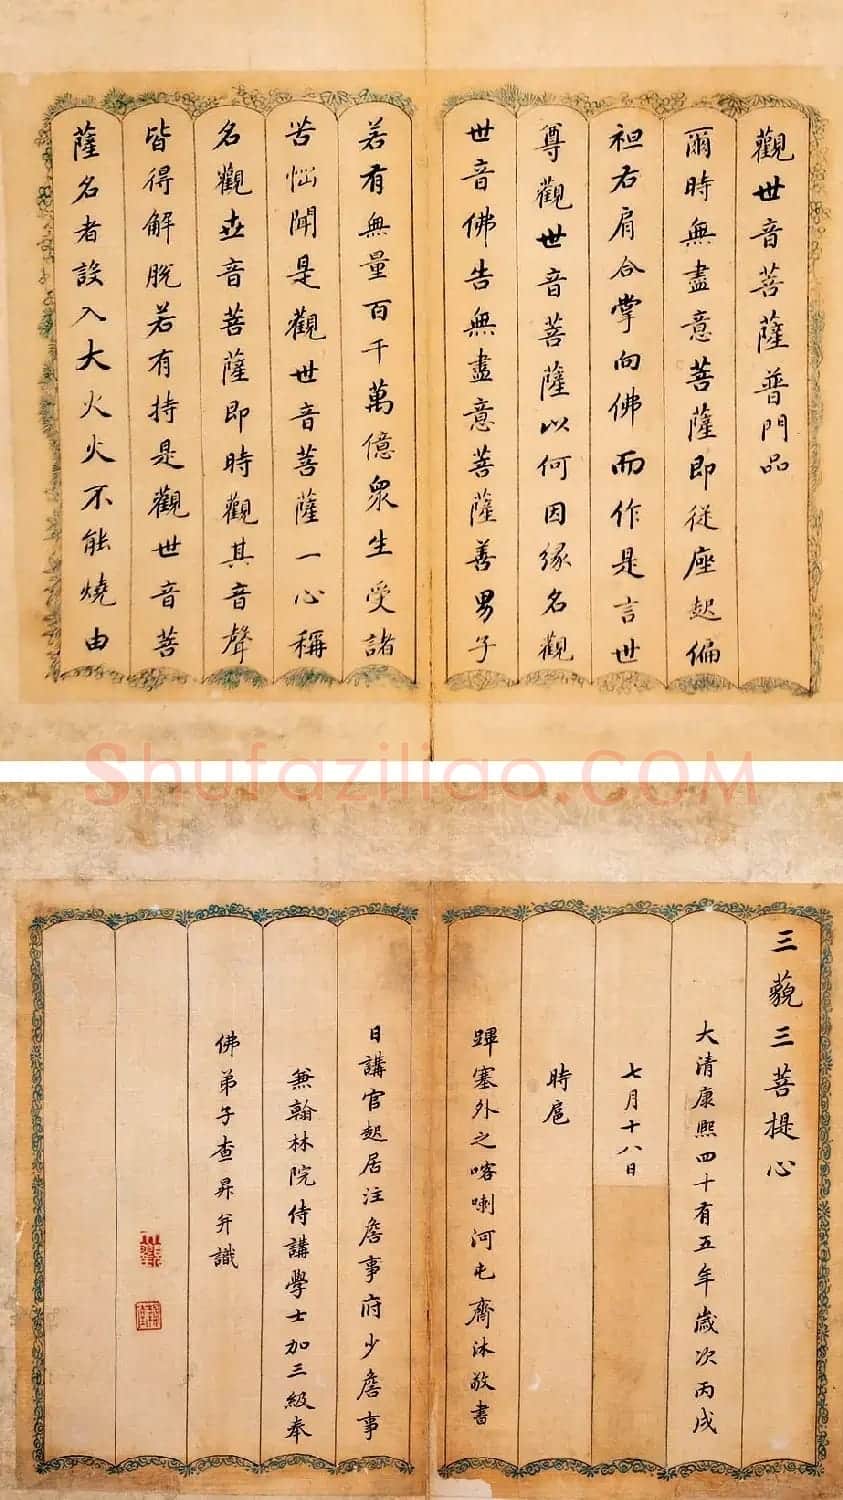 觀世音菩薩普門品
爾時無盡意菩薩即從座起偏
袒右肩合掌向佛而作是言世
尊觀世音菩薩以何因緣名觀
世音佛告無盡意菩薩善男子
若有無量百千萬億眾生受諸
苦惱聞是觀世音菩薩一心稱
名觀世音菩薩即時觀其音聲
皆得解脫若有持是觀世音菩
薩名者設入大火火不能燒由
Shufaziliao.COM
三藐三菩提心
大清康熙四十有五年歲次丙戌
七月十八日
時扈
蹕塞外之喀喇河屯齋沐敬書
日講官起居注詹事府少詹事
兼翰林院侍講學士加三級奉
佛弟子查昇并識